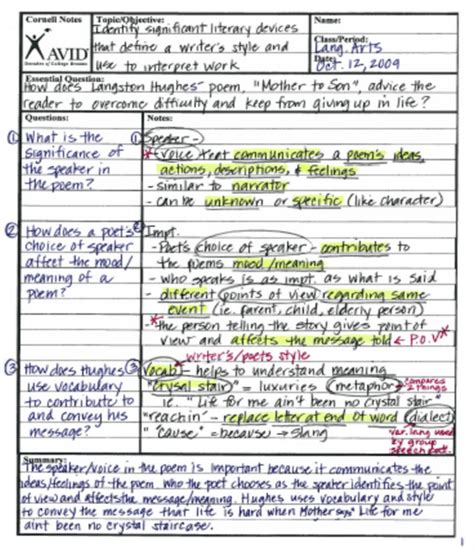 Cornell Notes
Topic/Objective:
Name:
Identify significant literary devices
that define a writer's style and
use to interpret work
AVID
Decades of College Dreams
Class/Period:
Lang. Arts
Date:
Oct. 12, 2009
Essential Question:
How does Langston Hughes' poem, "Mother to Son", advice the
reader to overcome difficulty and keep from giving up in life?
Questions:
Notes:
① What is the
significance of
the speaker in
the poem?
① Speaker -
* voice that communicates a poem's ideas,
actions, descriptions, & feelings
- similar to narrator
- can be unknown or specific (like character)
② How does a poet's
choice of speaker
affect the mood/
meaning of a
poem?
② Impt.
- Poet's choice of speaker - contributes to
the poems mood/meaning
- who speaks is as impt. as what is said
- different points of view regarding same
event (ie. parent, child, elderly person)
*- the person telling the story gives point of
view and affects the message told ← P.O.V*
writer's/poets style
③ How does Hughes
use vocabulary
to contribute to
and convey his
message?
③ Vocab - helps to understand meaning
"Crysal stair" = luxuries (metaphor) compares
2 things
ie. "Life for me ain't been no crystal stair"
"reachin" - replace letter at end of word (dialect)
"'cause" = because → slang
Var. lang used
by group
speech patt.
Summary:
The speaker/voice in the poem is important because it communicates the
ideas/feelings of the poem. Who the poet chooses as the speaker identifies the point
of view and affects the message/meaning. Hughes uses vocabulary and style
to convey the message that life is hard when Mother says "Life for me
aint been no crystal staircase.
1